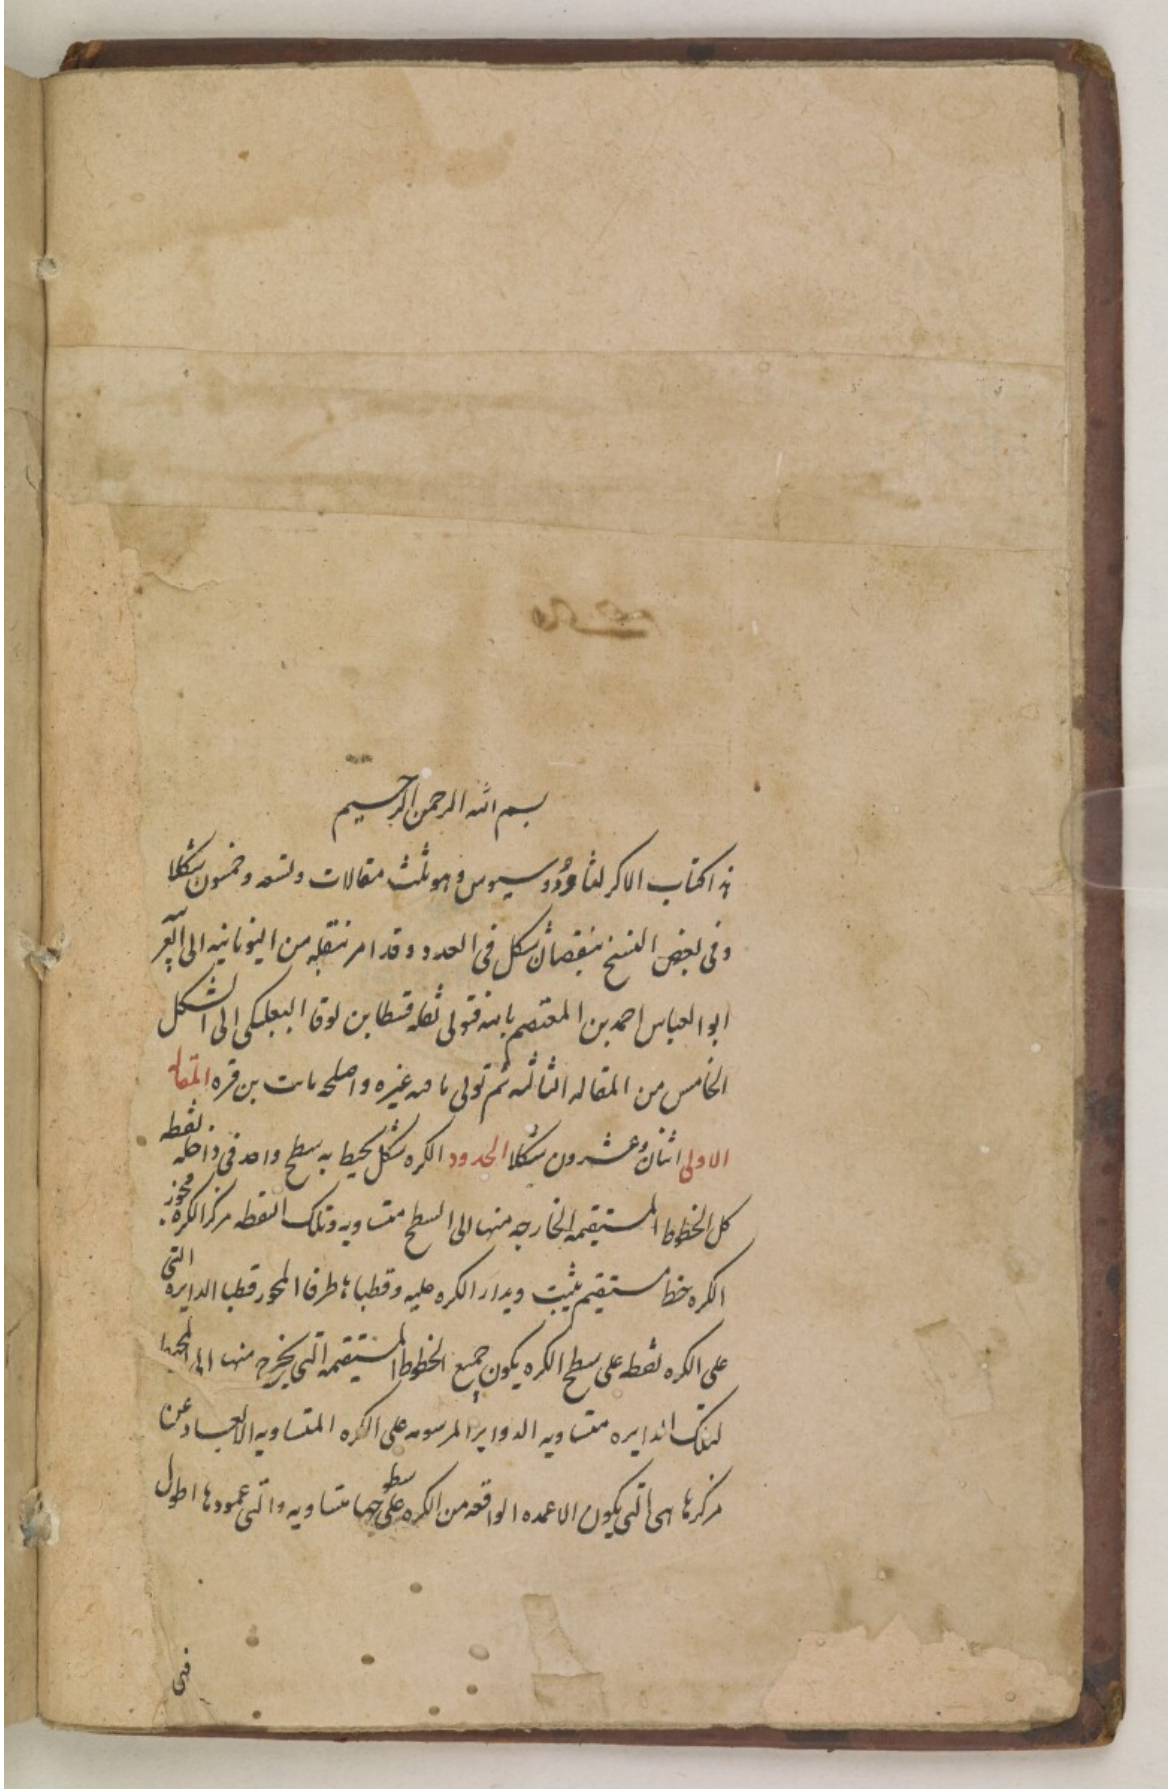 بسم الله الرحمن الرحيم
هذا كتاب الاكر لثاوذوسيوس وهو ثلث مقالات وتسعه وخمسون شكلا
وفى بعض النسخ بنقصان شكل فى العدد وقد امر بنقله من اليونانيه الى العربيه
ابو العباس احمد بن المعتصم بالله فتولى نقله قسطا بن لوقا البعلبكى الى الشكل
الخامس من المقاله الثالثه ثم تولى باقيه غيره واصلحه ثابت بن قره المقاله
الاولى اثنان وعشرون شكلا الحدود الكره شكل يحيط به سطح واحد فى داخله نقطه
كل الخطوط المستقيمه الخارجه منها الى السطح متساويه وتلك النقطه مركز الكره محور
الكره خط مستقيم يثبت ويدار الكره عليه وقطباها طرفا المحور قطبا الدايره التى
على الكره نقطه على سطح الكره يكون جميع الخطوط المستقيمه التى يخرج منها الى المحيط
لتلك الدايره متساويه الدواير المرسومه على الكره المتساويه الابعاد عن
مركزها هى التى يكون الاعمده الواقعه من الكره على سطوحها متساويه والتى عمودها اطول
فهى